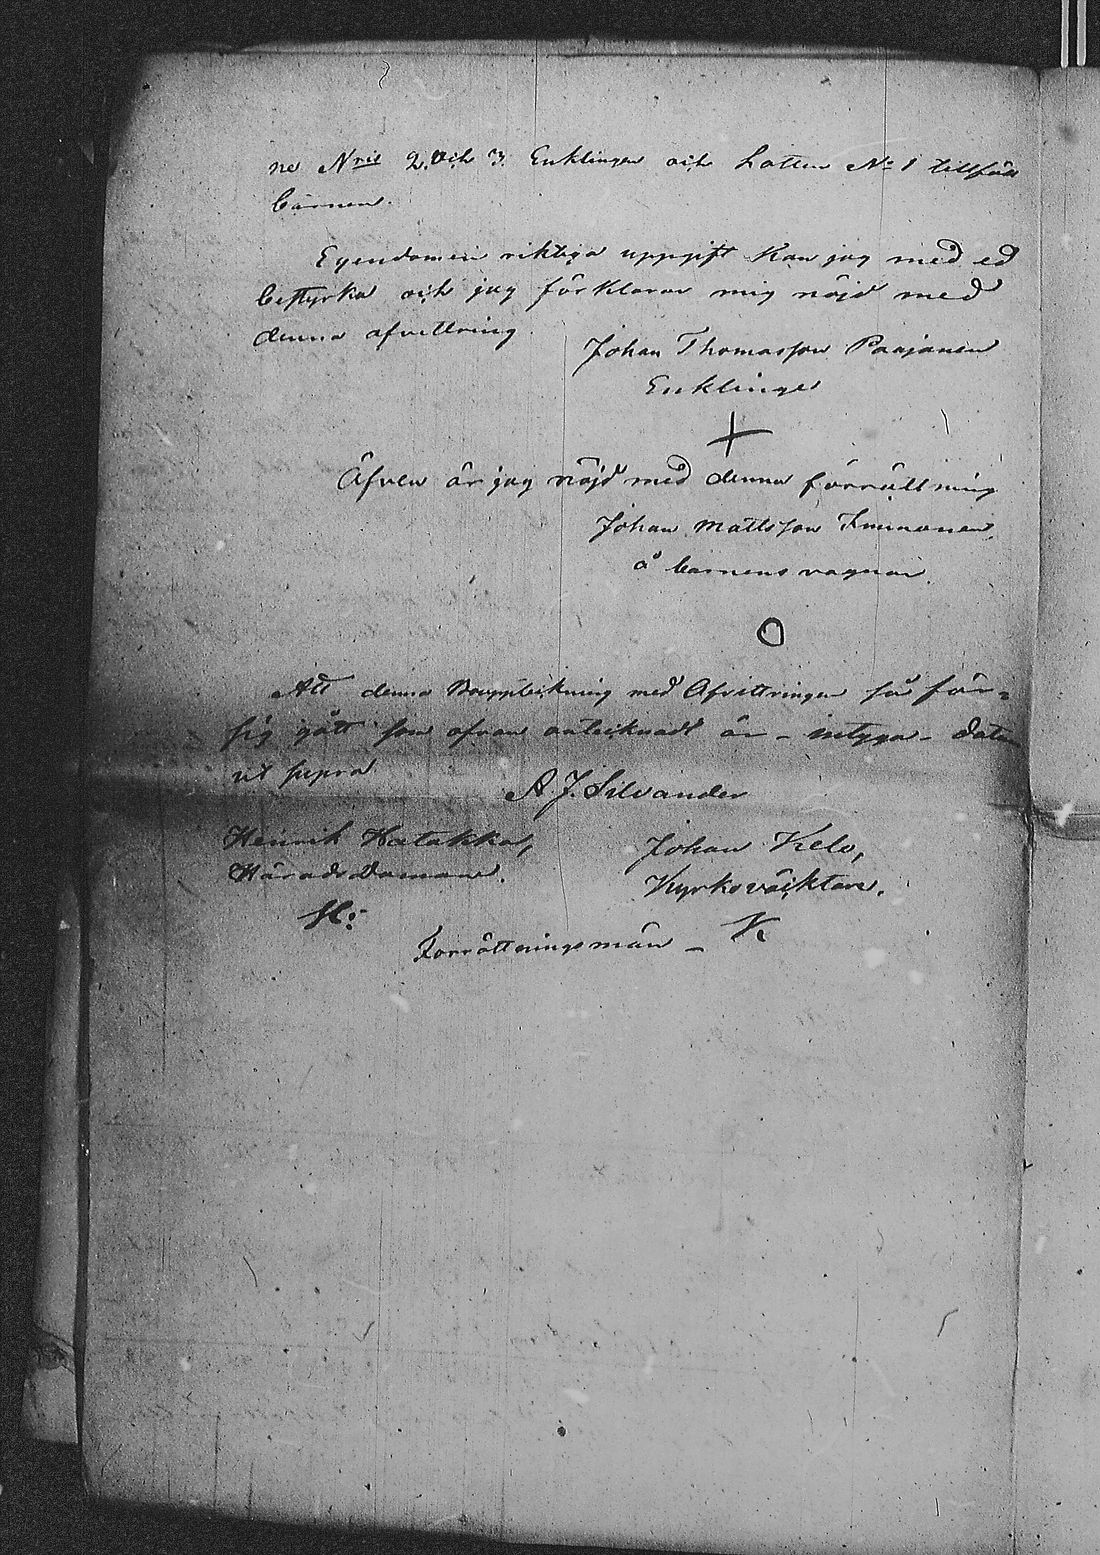 ne N:ris 2 och 3 Enklingen och Lotten N:o 1 tillföll
barnen.
Egendomens riktiga uppgift kan jag med ed
bestyrka och jag förklarar mig nöjd med
denna afvittring
Johan Thomasson Paajanen
Enkling
Äfven är jag nöjd med denna förrättning
Johan Mattsson
å barnens vägnar.
Att denna Bouppteckning med Afvittringen så för=
sig gått som ofvan antecknadt är – intyga – datum
ut supra
A. J. Silvander
Henrik Hatakka,
Häradsdomare.
Johan Kelo,
Kyrkoväcktare.
H:
K:
Förrättningsmän –